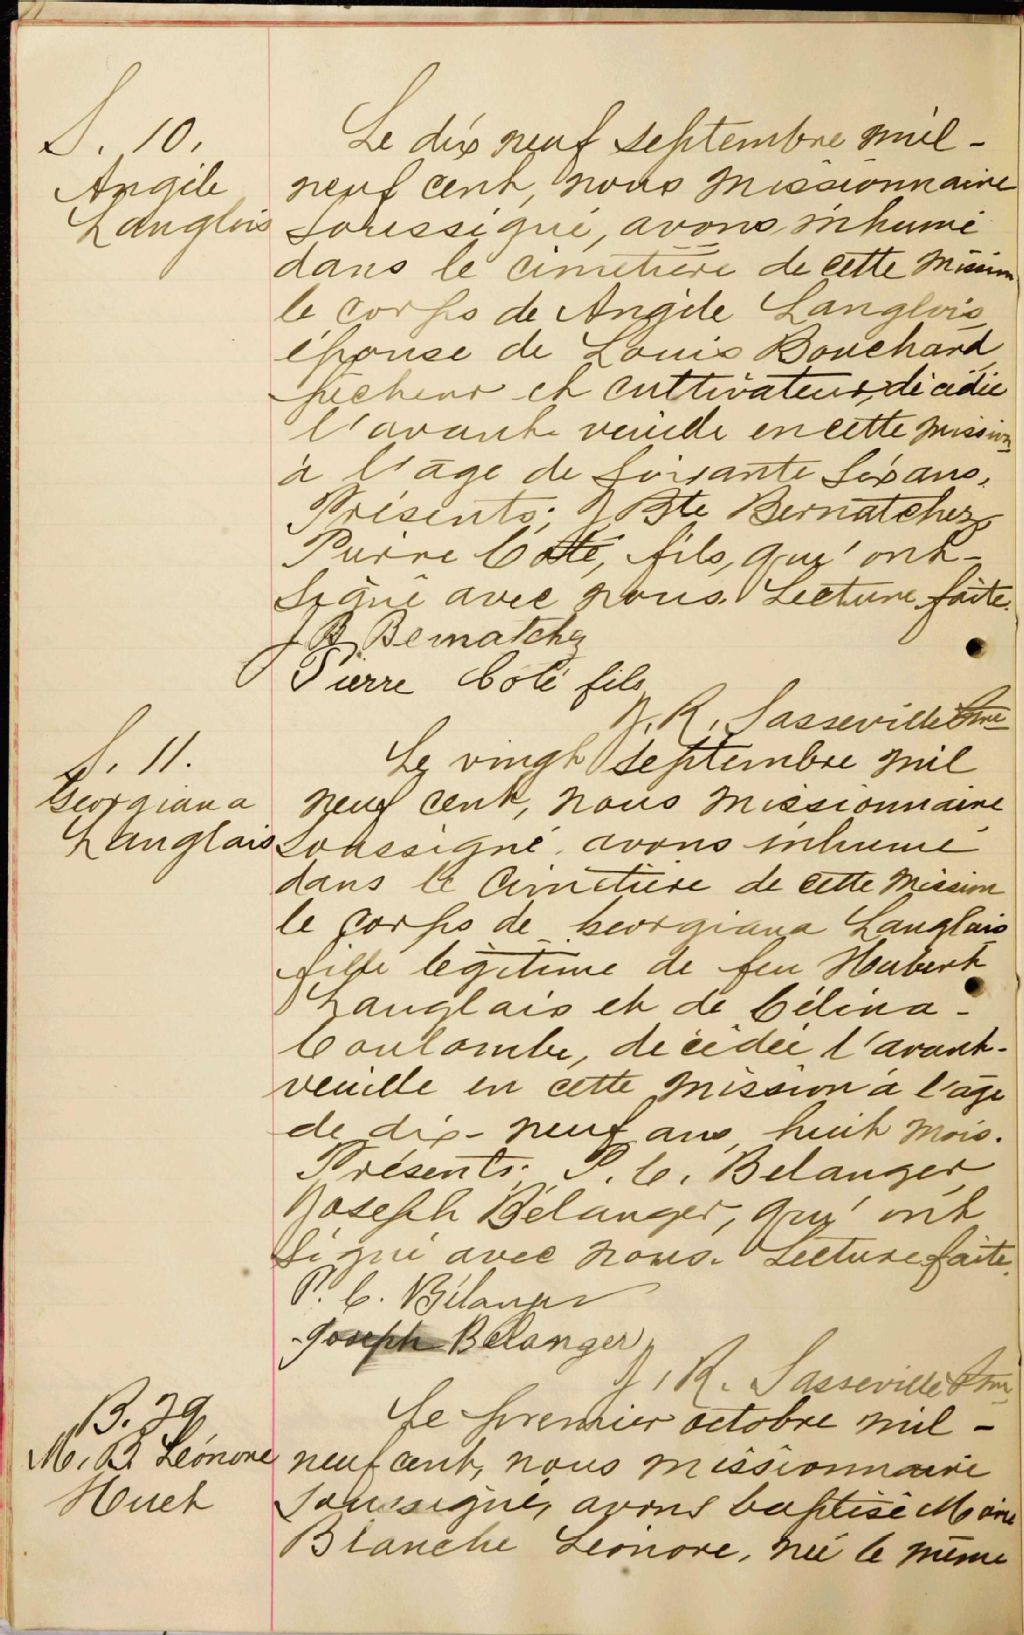 S. 10.
Angèle
Langlois
Le dix neuf septembre mil-
neuf cent, nous missionnaire
soussigné, avons inhumé
dans le cimetière de cette mission
le corps de Angèle Langlois
épouse de Louis Bouchard
pêcheur et cultivateur, décédée
l'avant veuille en cette mission
à l'âge de soixante six ans.
Présents: J Bte Bernatchez,
Pierre Coté, fils, qui ont-
signé avec nous. Lecture faite.
J B Bernatchez
Pierre Coté fils
J. R. Sasseville Ptre
S. 11.
Georgiana
Langlais
Le vingt septembre mil
neuf cent, nous missionnaire
soussigné avons inhumé
dans le cimetière de cette mission
le corps de Georgiana Langlais
fille légitime de feu Hubert
Langlais et de Célina-
Coulombe, décédée l'avant-
veuille en cette mission à l'âge
de dix-neuf ans huit mois.
Présents: P. C. Bélanger,
Joseph Bélanger, qui ont
signé avec nous. Lecture faite.
P. C. Bélanger
Joseph Bélanger
J. R. Sasseville Ptre
B. 29
M. B. Léonore
Huet
Le premier octobre mil-
neuf cent, nous missionnaire
soussigné, avons baptisé Marie
Blanche Léonore, née le même